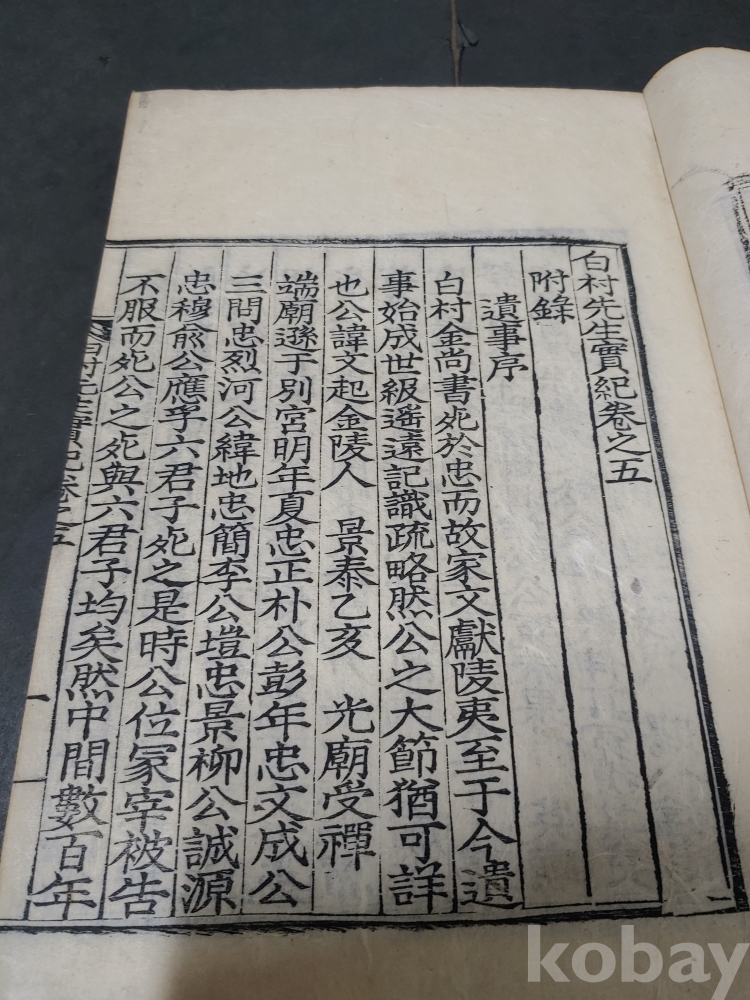 白村先生實紀卷之五
附錄
遺事序
白村金尚書死於忠而故家文獻陵夷至于今遺
事始成世級遙遠記識疏略然公之大節猶可詳
也公諱文起金陵人 景泰乙亥 光廟受禪
端廟遜于別宮明年夏忠正朴公彭年忠文成公
三問忠烈河公緯地忠簡李公塏忠景柳公誠源
忠穆兪公應孚六君子死之是時公位冢宰被告
不服而死公之死與六君子均矣然中間數百年
白村先生實紀卷之五
一
kobay